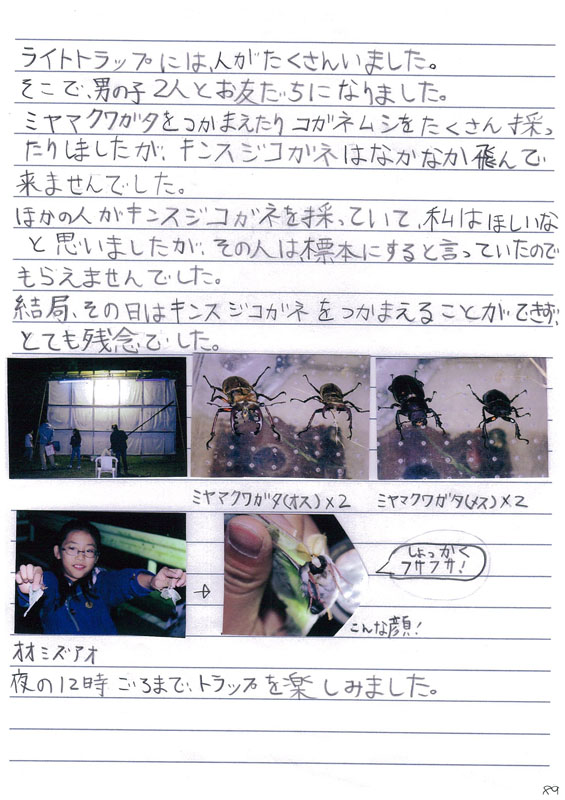 ライトトラップには、人がたくさんいました。
そこで、男の子2人とお友だちになりました。
ミヤマクワガタをつかまえたりコガネムシをたくさん採っ
たりしましたが、キンスジコガネはなかなか飛んで
来ませんでした。
ほかの人がキンスジコガネを採っていて、私はほしいな
と思いましたが、その人は、標本にすると言っていたので
もらえませんでした。
結局、その日はキンスジコガネをつかまえることができず、
とても残念でした。
ミヤマクワガタ(オス)×2
ミヤマクワガタ(メス)×2
しょっかく
フサフサ!
こんな顔!
オオミズアオ
夜の12時ごろまで、トラップを楽しみました。
89